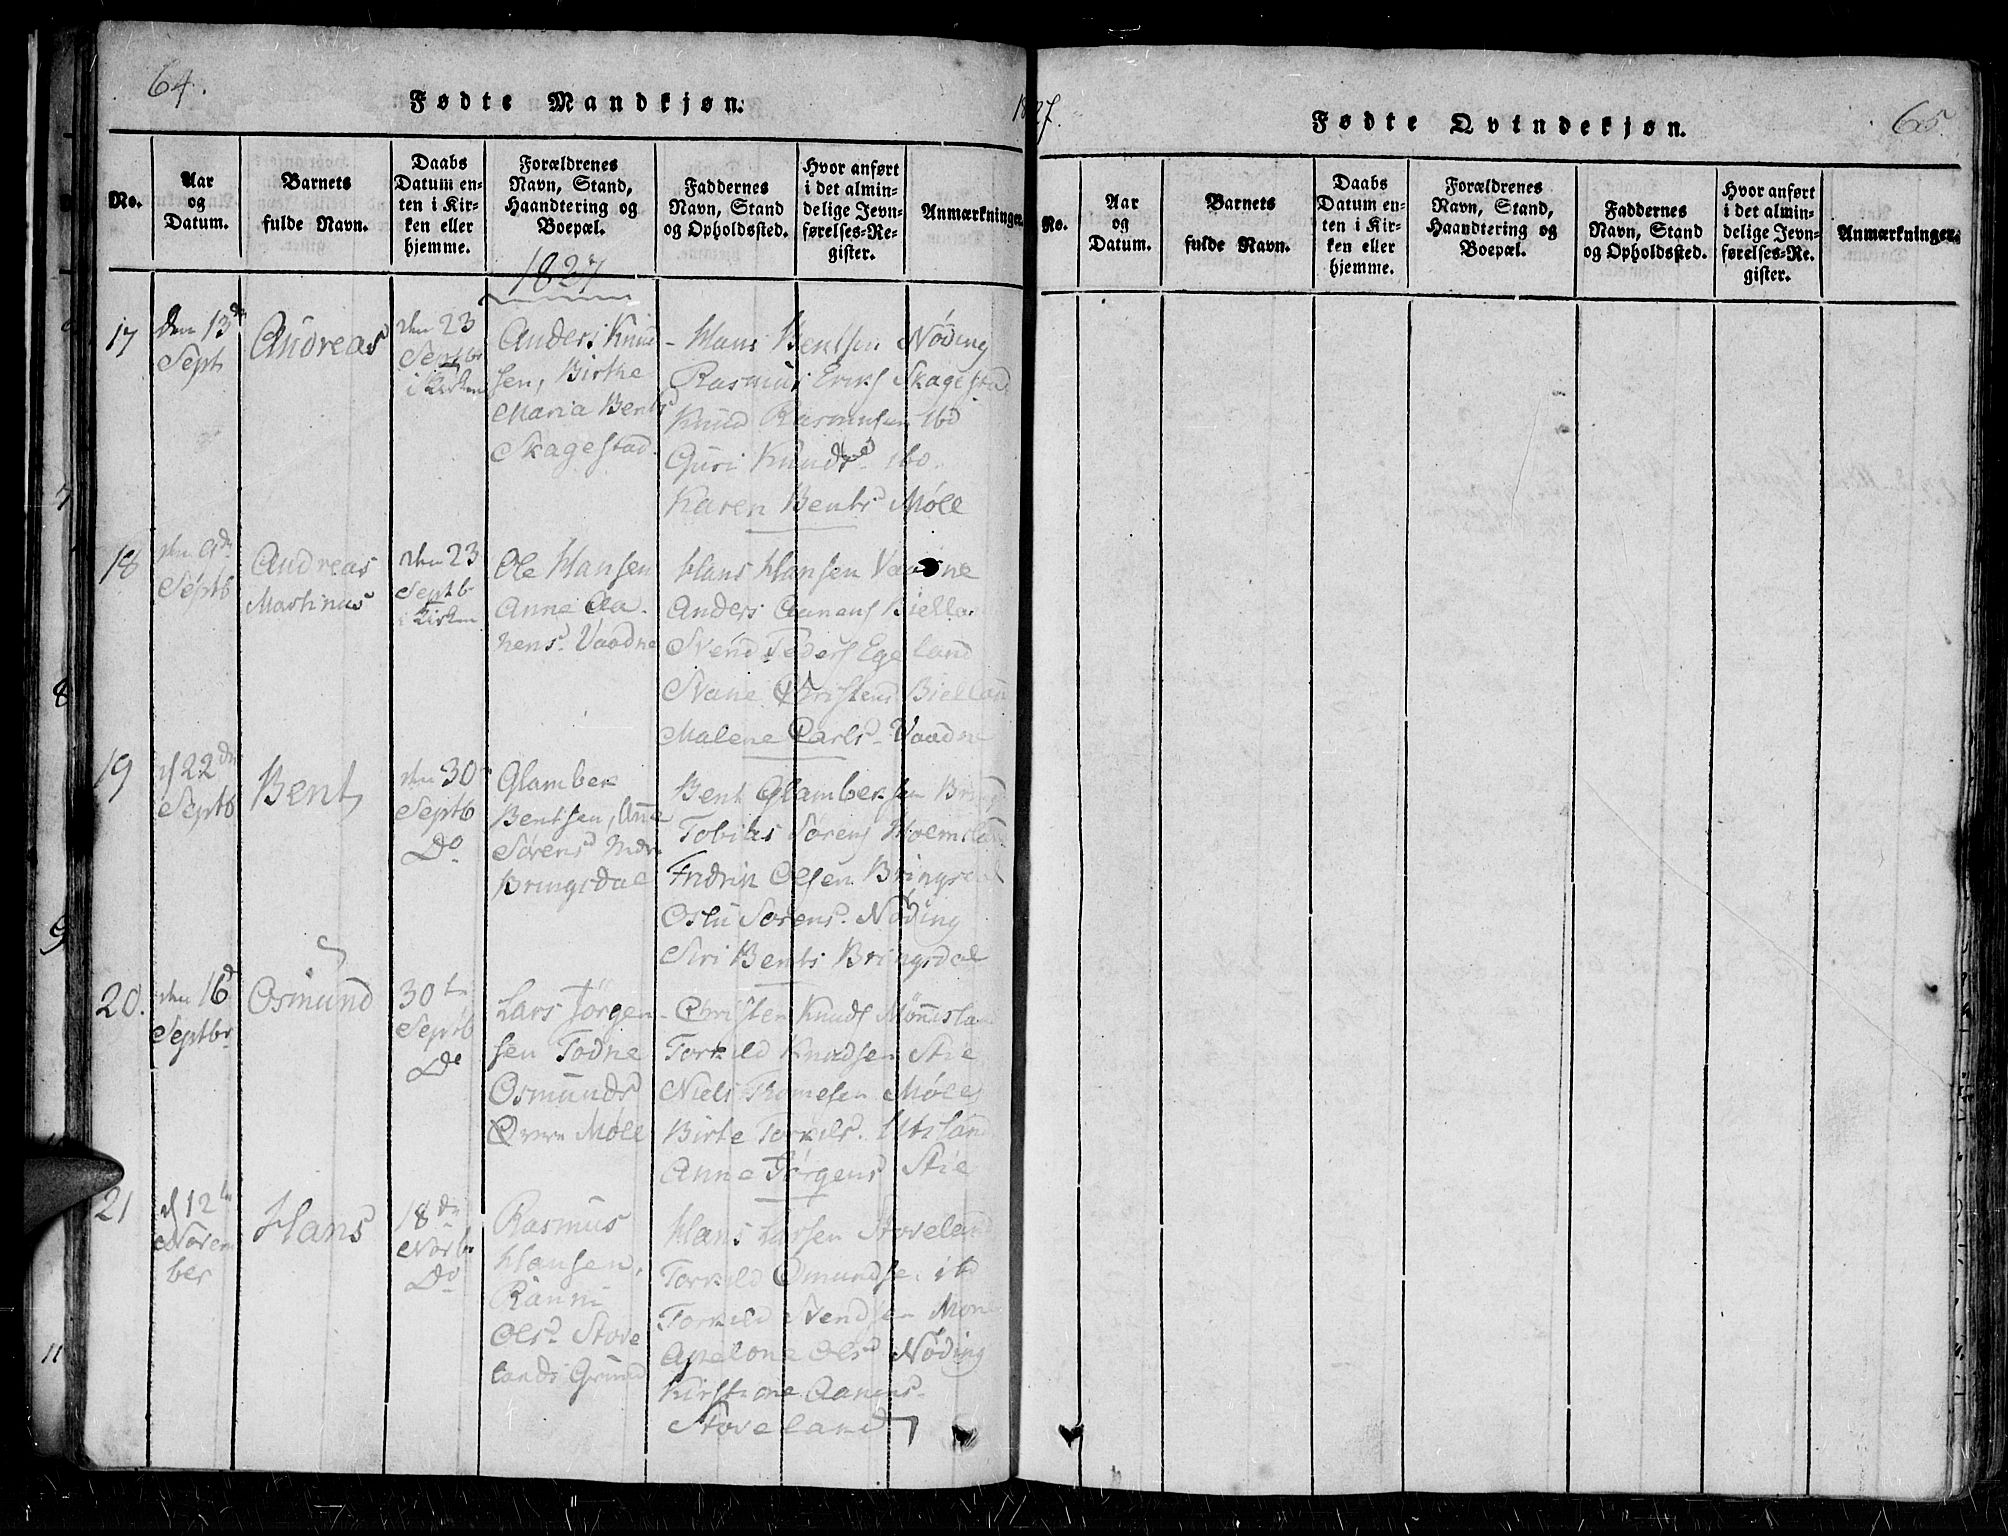 64.
Fødte Mandkjøn.
1827.
No.
Aar
og
Datum.
Barnets
fulde Navn.
Daabs
Datum en-
ten i Kir-
ken eller
hjemme.
Forældrenes
Navn, Stand,
Haandtering og
Boepæl.
Faddernes
Navn, Stand
og Opholdssted.
Hvor anført
i det almin-
delige Jevn-
førelses-Re-
gister.
Anmærkninger.
1827
17
den 13de
Sept
Andreas
den 23
Septbr
i Kirken
Anders Knud-
sen, Birthe
Maria Bents
Skagestad.
Hans Bentsen Nøding
Rasmus Eriks Skagestad
Knud Rasmusen ibd
Guri Knudsd ibd.
Karen Bents Møll
18
Septb
Andreas
Martinus
den 23
Septb
i Kirken
Ole Hansen
Anne Aa-
nensd. Vaadne
Hans Hansen Vaadne
Anders Aanens Bielland
Svend Peders Egeland
Stane Christens Bielland
Malene Carls Vaadne
19
d 22de
Septb
Bent
den 30
Septb
Do
Glamber
Bentsen, Anne
Sørensd
Bringsdal
Bent Glambersen Brings
Tobias Sørens Holmsland
Fridrik Olsen Bringsdal
Oslu Sørens. Nøding
Siri Bents Bringsdal
20.
den 16d
Septbr
Osmund
30t
Septb
Do
Lars Jørgen-
sen Todne
Osmunds
Øvre Møll
Christen Knuds Mønnesland
Torkild Knudsen Stie
Niels Thomesen Møll
Birte Torkils. Udsland
Anne Jørgens Stie
21
d 12te
Novem
ber
Hans
18de
Novb.
Do
Rasmus
Hansen,
Ranni
Olsd. Stove
lands Grund
Hans Larsen Stoveland
Torkild Omundsen ibd
Torkild Svendsen Mone
Apelone Olsd Nøding
Kirstine Aanens
Stoveland
65.
Fødte Qvindekjøn.
No.
Aar
og
Datum.
Barnets
fulde Navn.
Daabs
Datum en-
ten i Kir-
ken eller
hjemme.
Forældrenes
Navn, Stand,
Haandtering og
Boepæl.
Faddernes
Navn, Stand
og Opholdssted.
Hvor anført
i det almin-
delige Jevn-
førelses-Re-
gister.
Anmærkninger.